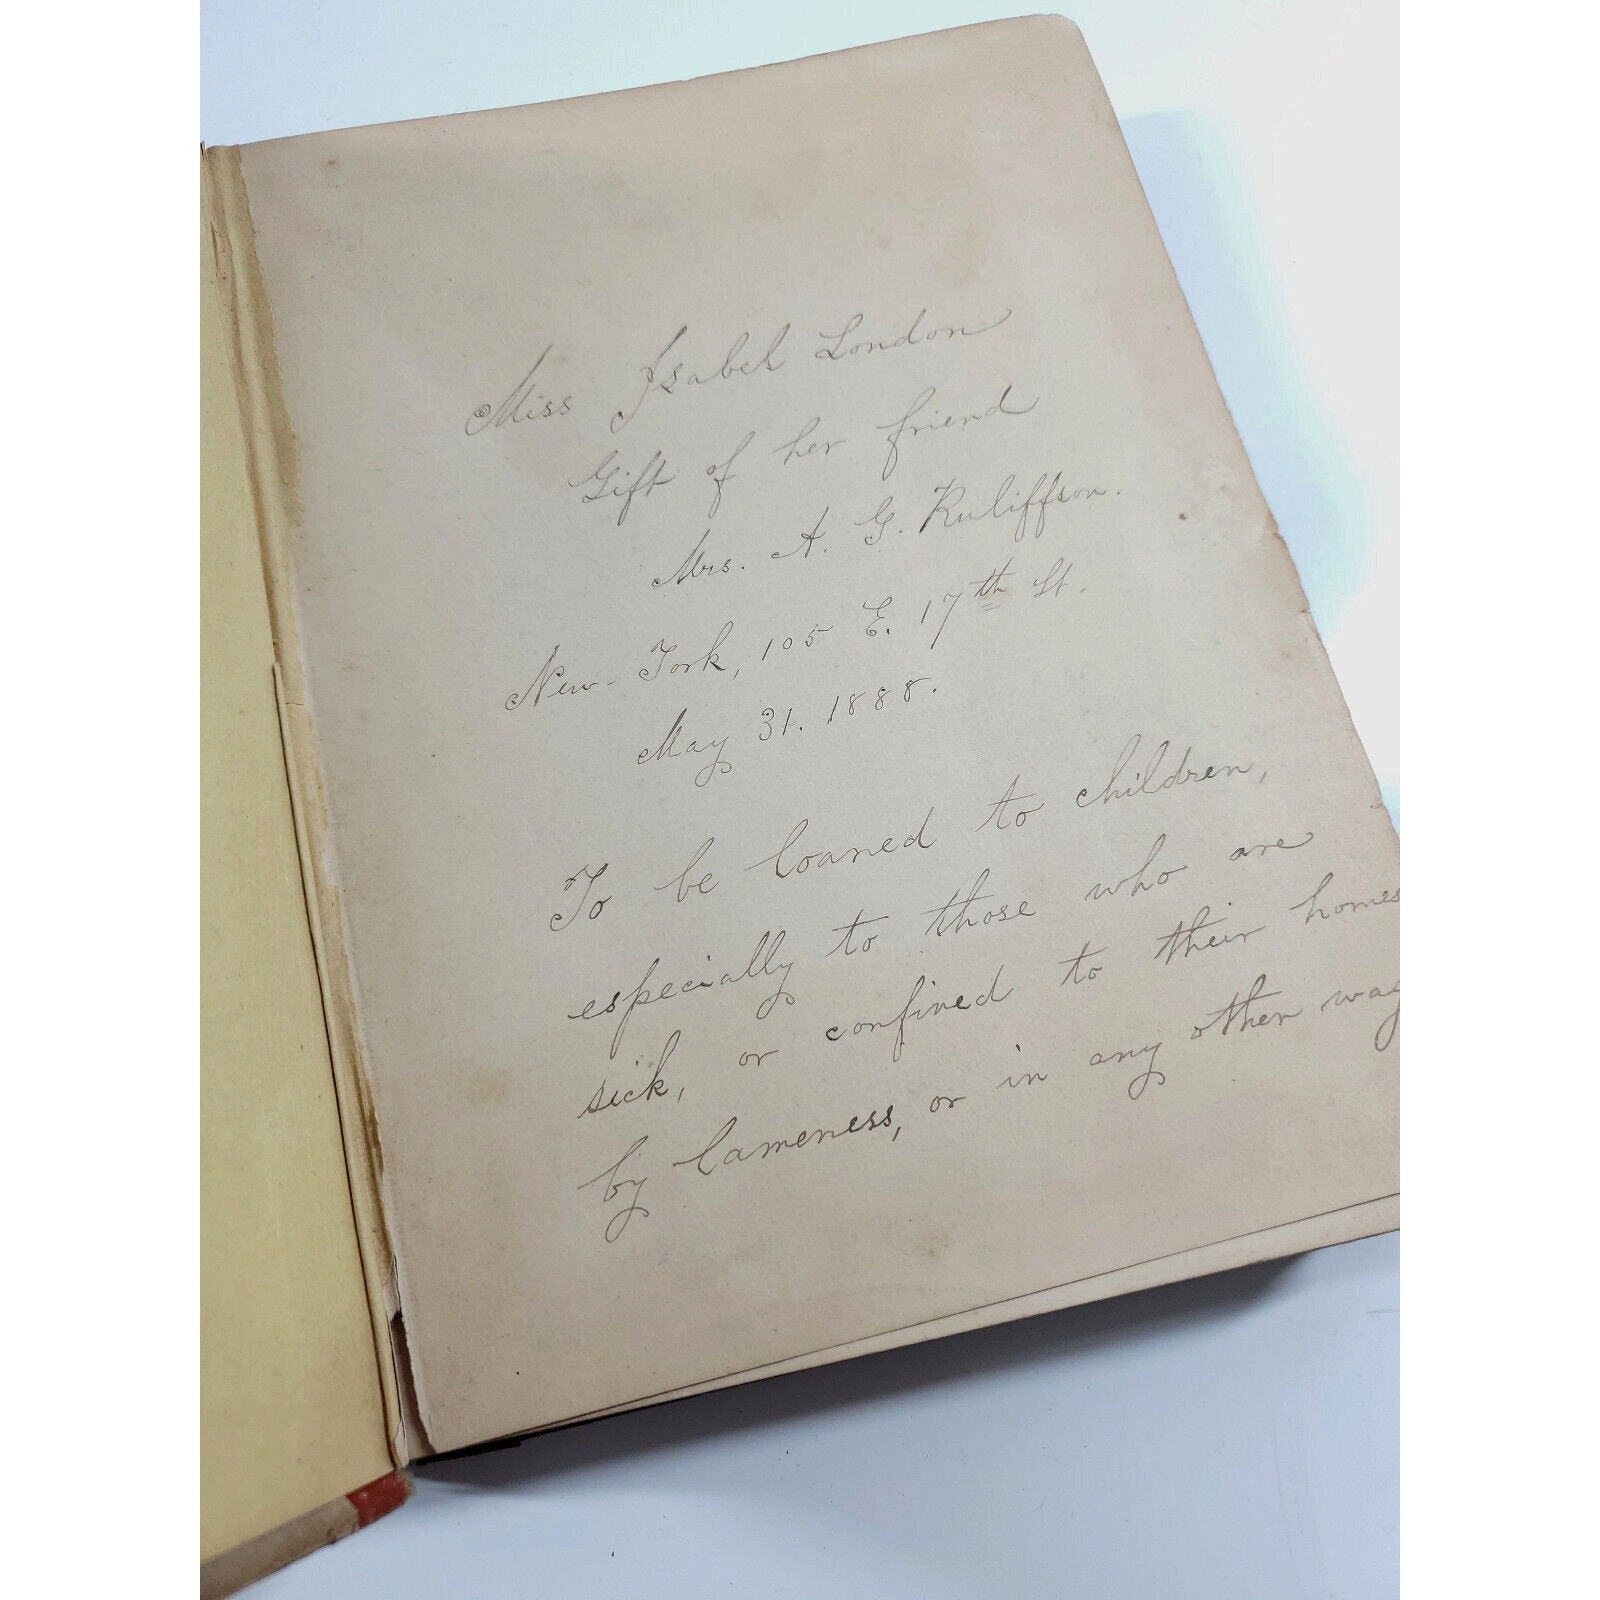 Miss Isabel London
Gift of her friend
Mrs. A. G. Ruliffson.
New-York, 105 E. 17th St.
May 31. 1888.
To be loaned to children,
especially to those who are
sick, or confined to their homes
by lameness, or in any other way